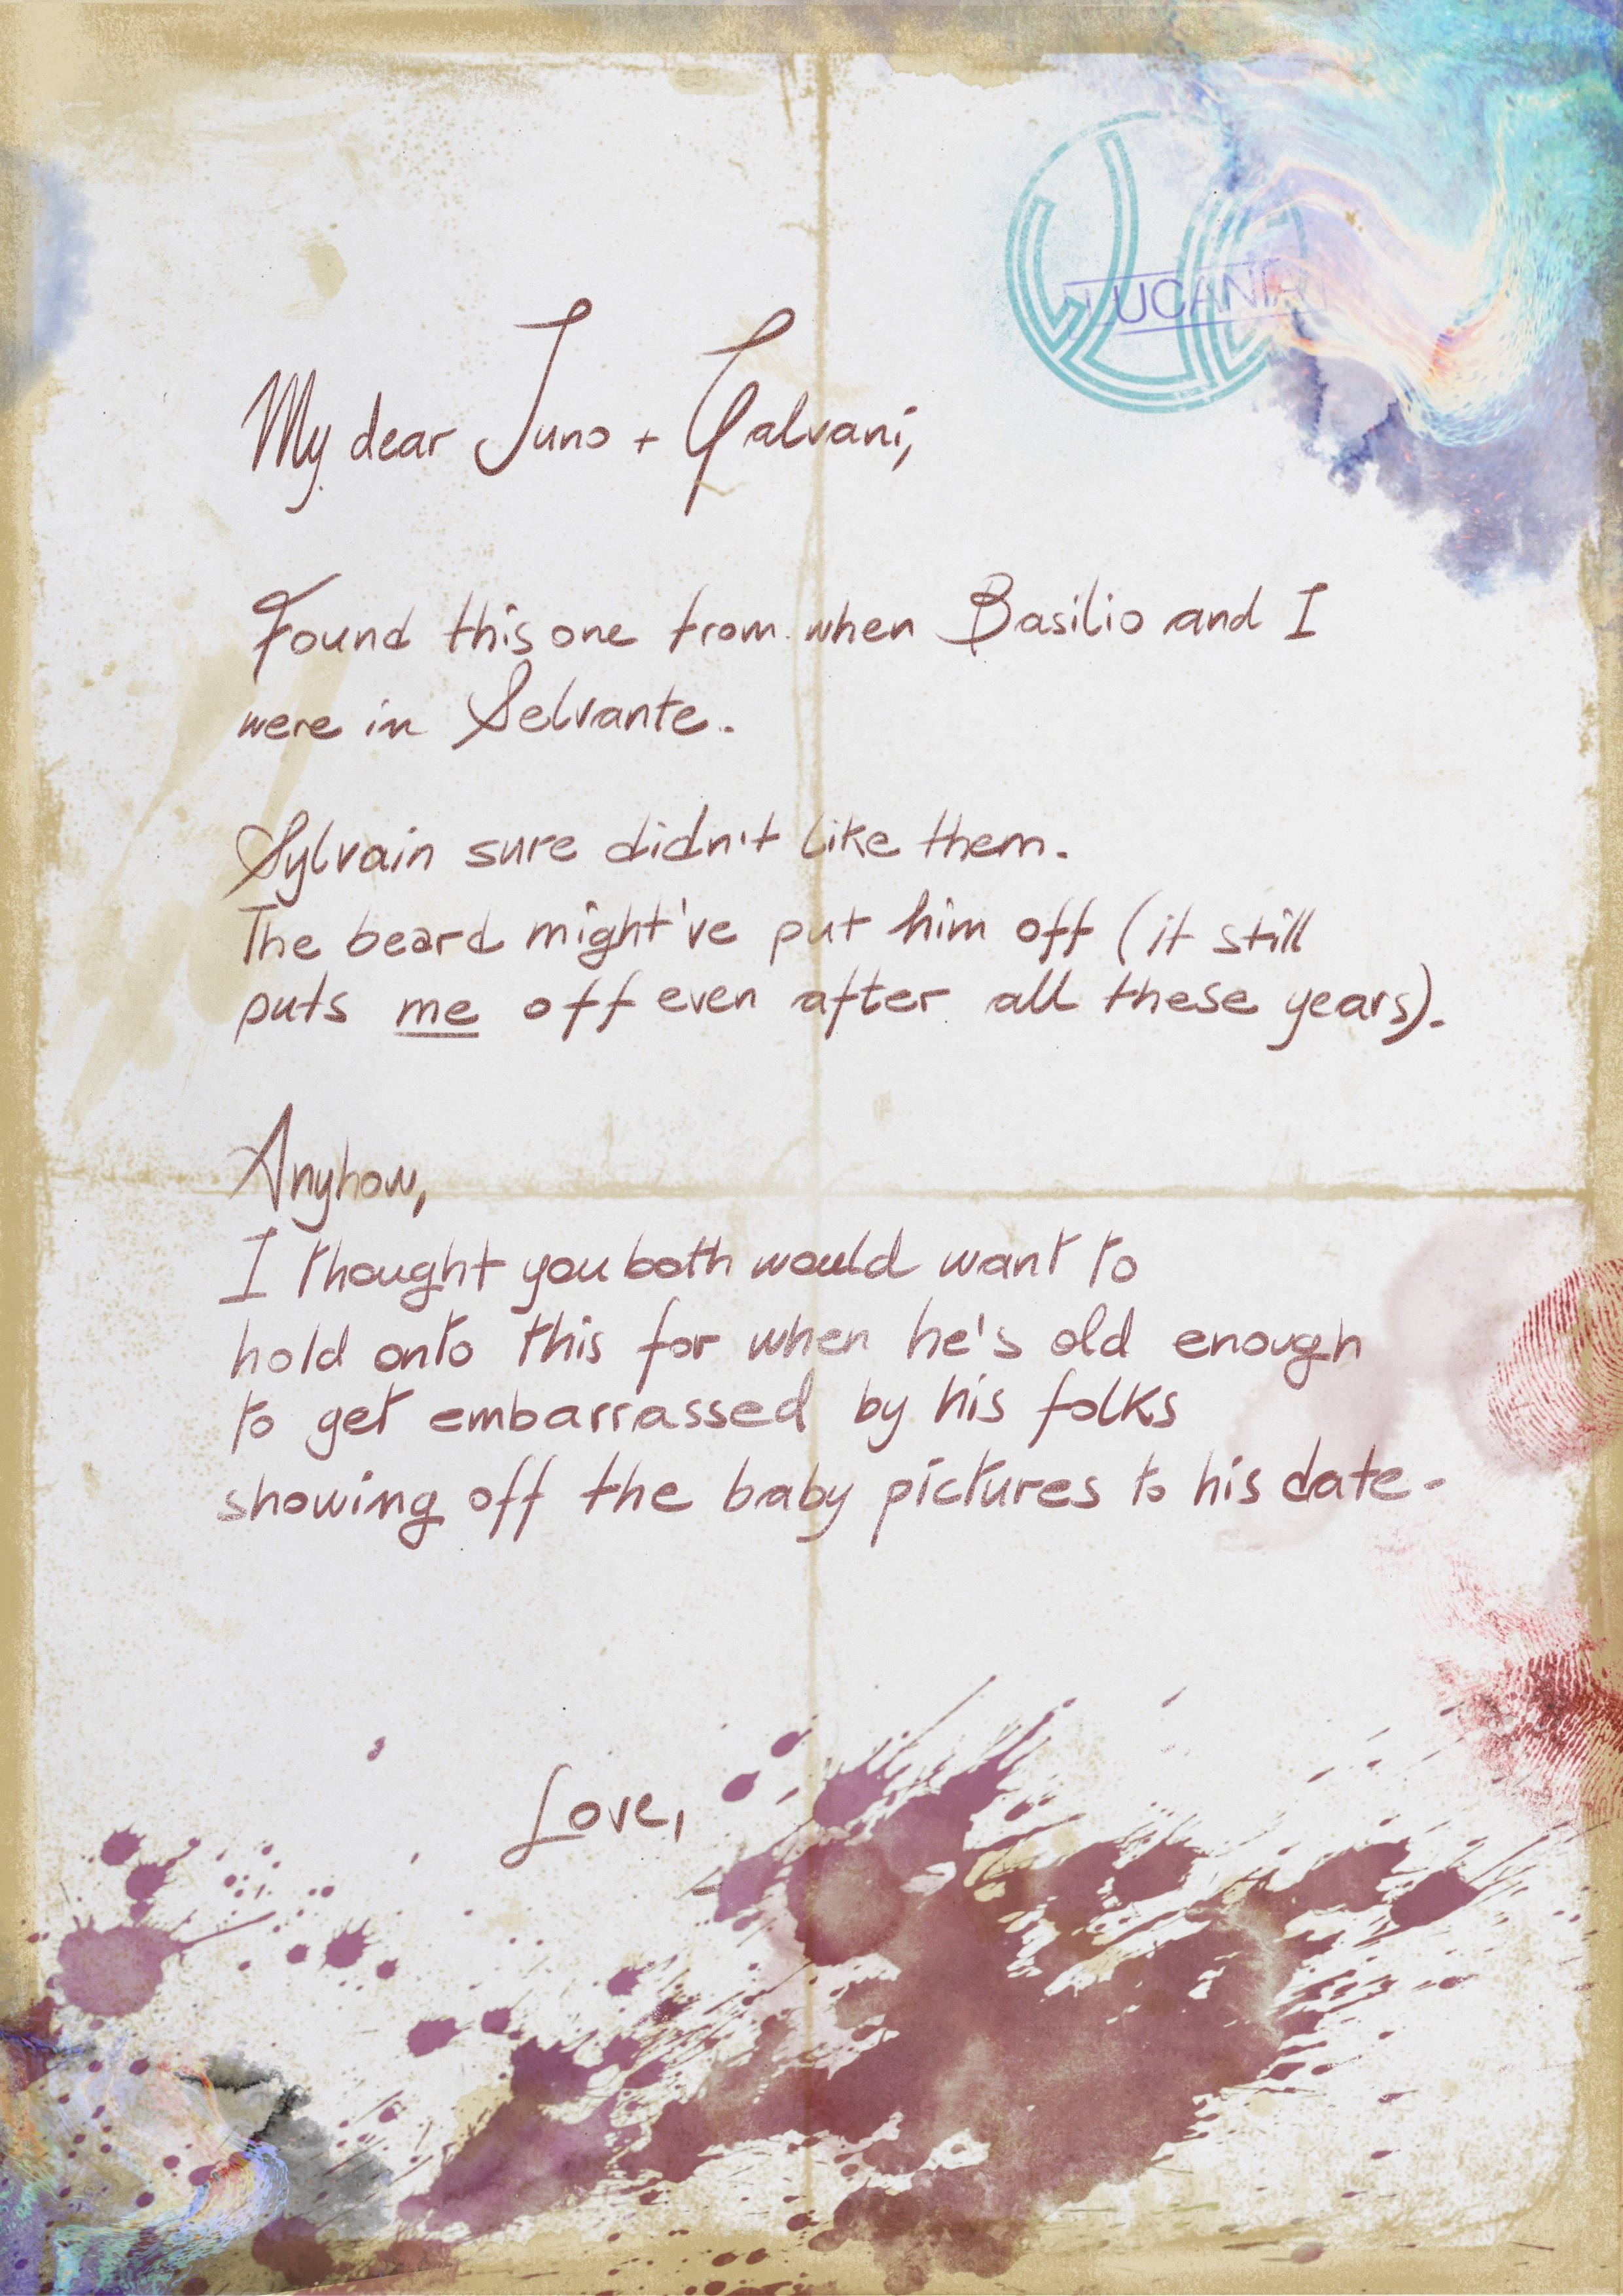 LUCANIA
My dear Juno + Galvani,
Found this one from when Basilio and I
were in Selvante.
Sylvain sure didn't like them.
The beard might've put him off (it still
puts me off even after all these years).
Anyhow,
I thought you both would want to
hold onto this for when he's old enough
to get embarrassed by his folks
showing off the baby pictures to his date.
Love,